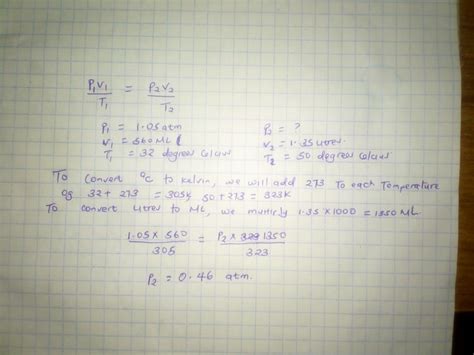 P₁V₁ / T₁ = P₂V₂ / T₂
P₁ = 1.05 atm P₂ = ?
V₁ = 560 ML V₂ = 1.35 litres.
T₁ = 32 degrees Celcius T₂ = 50 degrees Celcius
To convert °C to kelvin, we will add 273 To each Temperature
32 + 273 = 305K 50 + 273 = 323K
To convert litres to ML, we multiply 1.35 × 1000 = 1350 ML
1.05 × 560 / 305 = P₂ × 1350 / 323
P₂ = 0.46 atm.